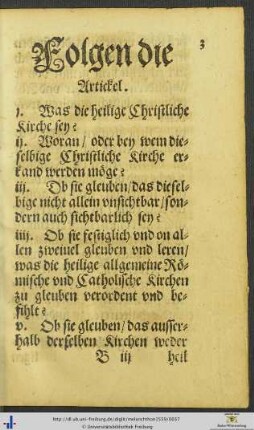 3
Folgen die
Artickel.
j. Was die heilige Christliche
Kirche sey?
ij. Woran/ oder bey wem die-
selbige Christliche Kirche er-
kand werden möge?
iij. Ob sie gleuben/ das diesel-
bige nicht allein vnsichtbar/ son-
dern auch sichtbarlich sey?
iiij. Ob sie festiglich vnd on al-
len zweiuel gleuben vnd leren/
was die heilige allgemeine Rö-
mische vnd Catholische Kirchen
zu gleuben verordent vnd be-
fihlt?
v. Ob sie gleuben/ das ausser-
halb derselben Kirchen weder
B iij heil
© Universitätsbibliothek Freiburg
Baden-Württemberg